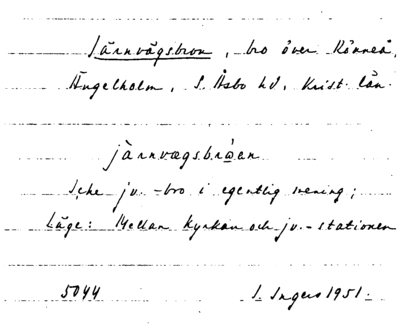 Järnvägsbron, bro över Rönneå,
Ängelholm, S. Åsbo hd, Krist. län.
järnvægsbrωan
Icke jv.-bro i egentlig mening;
Läge: Mellan kyrkan och jv.-stationen
5044 I. Ingers 1951.